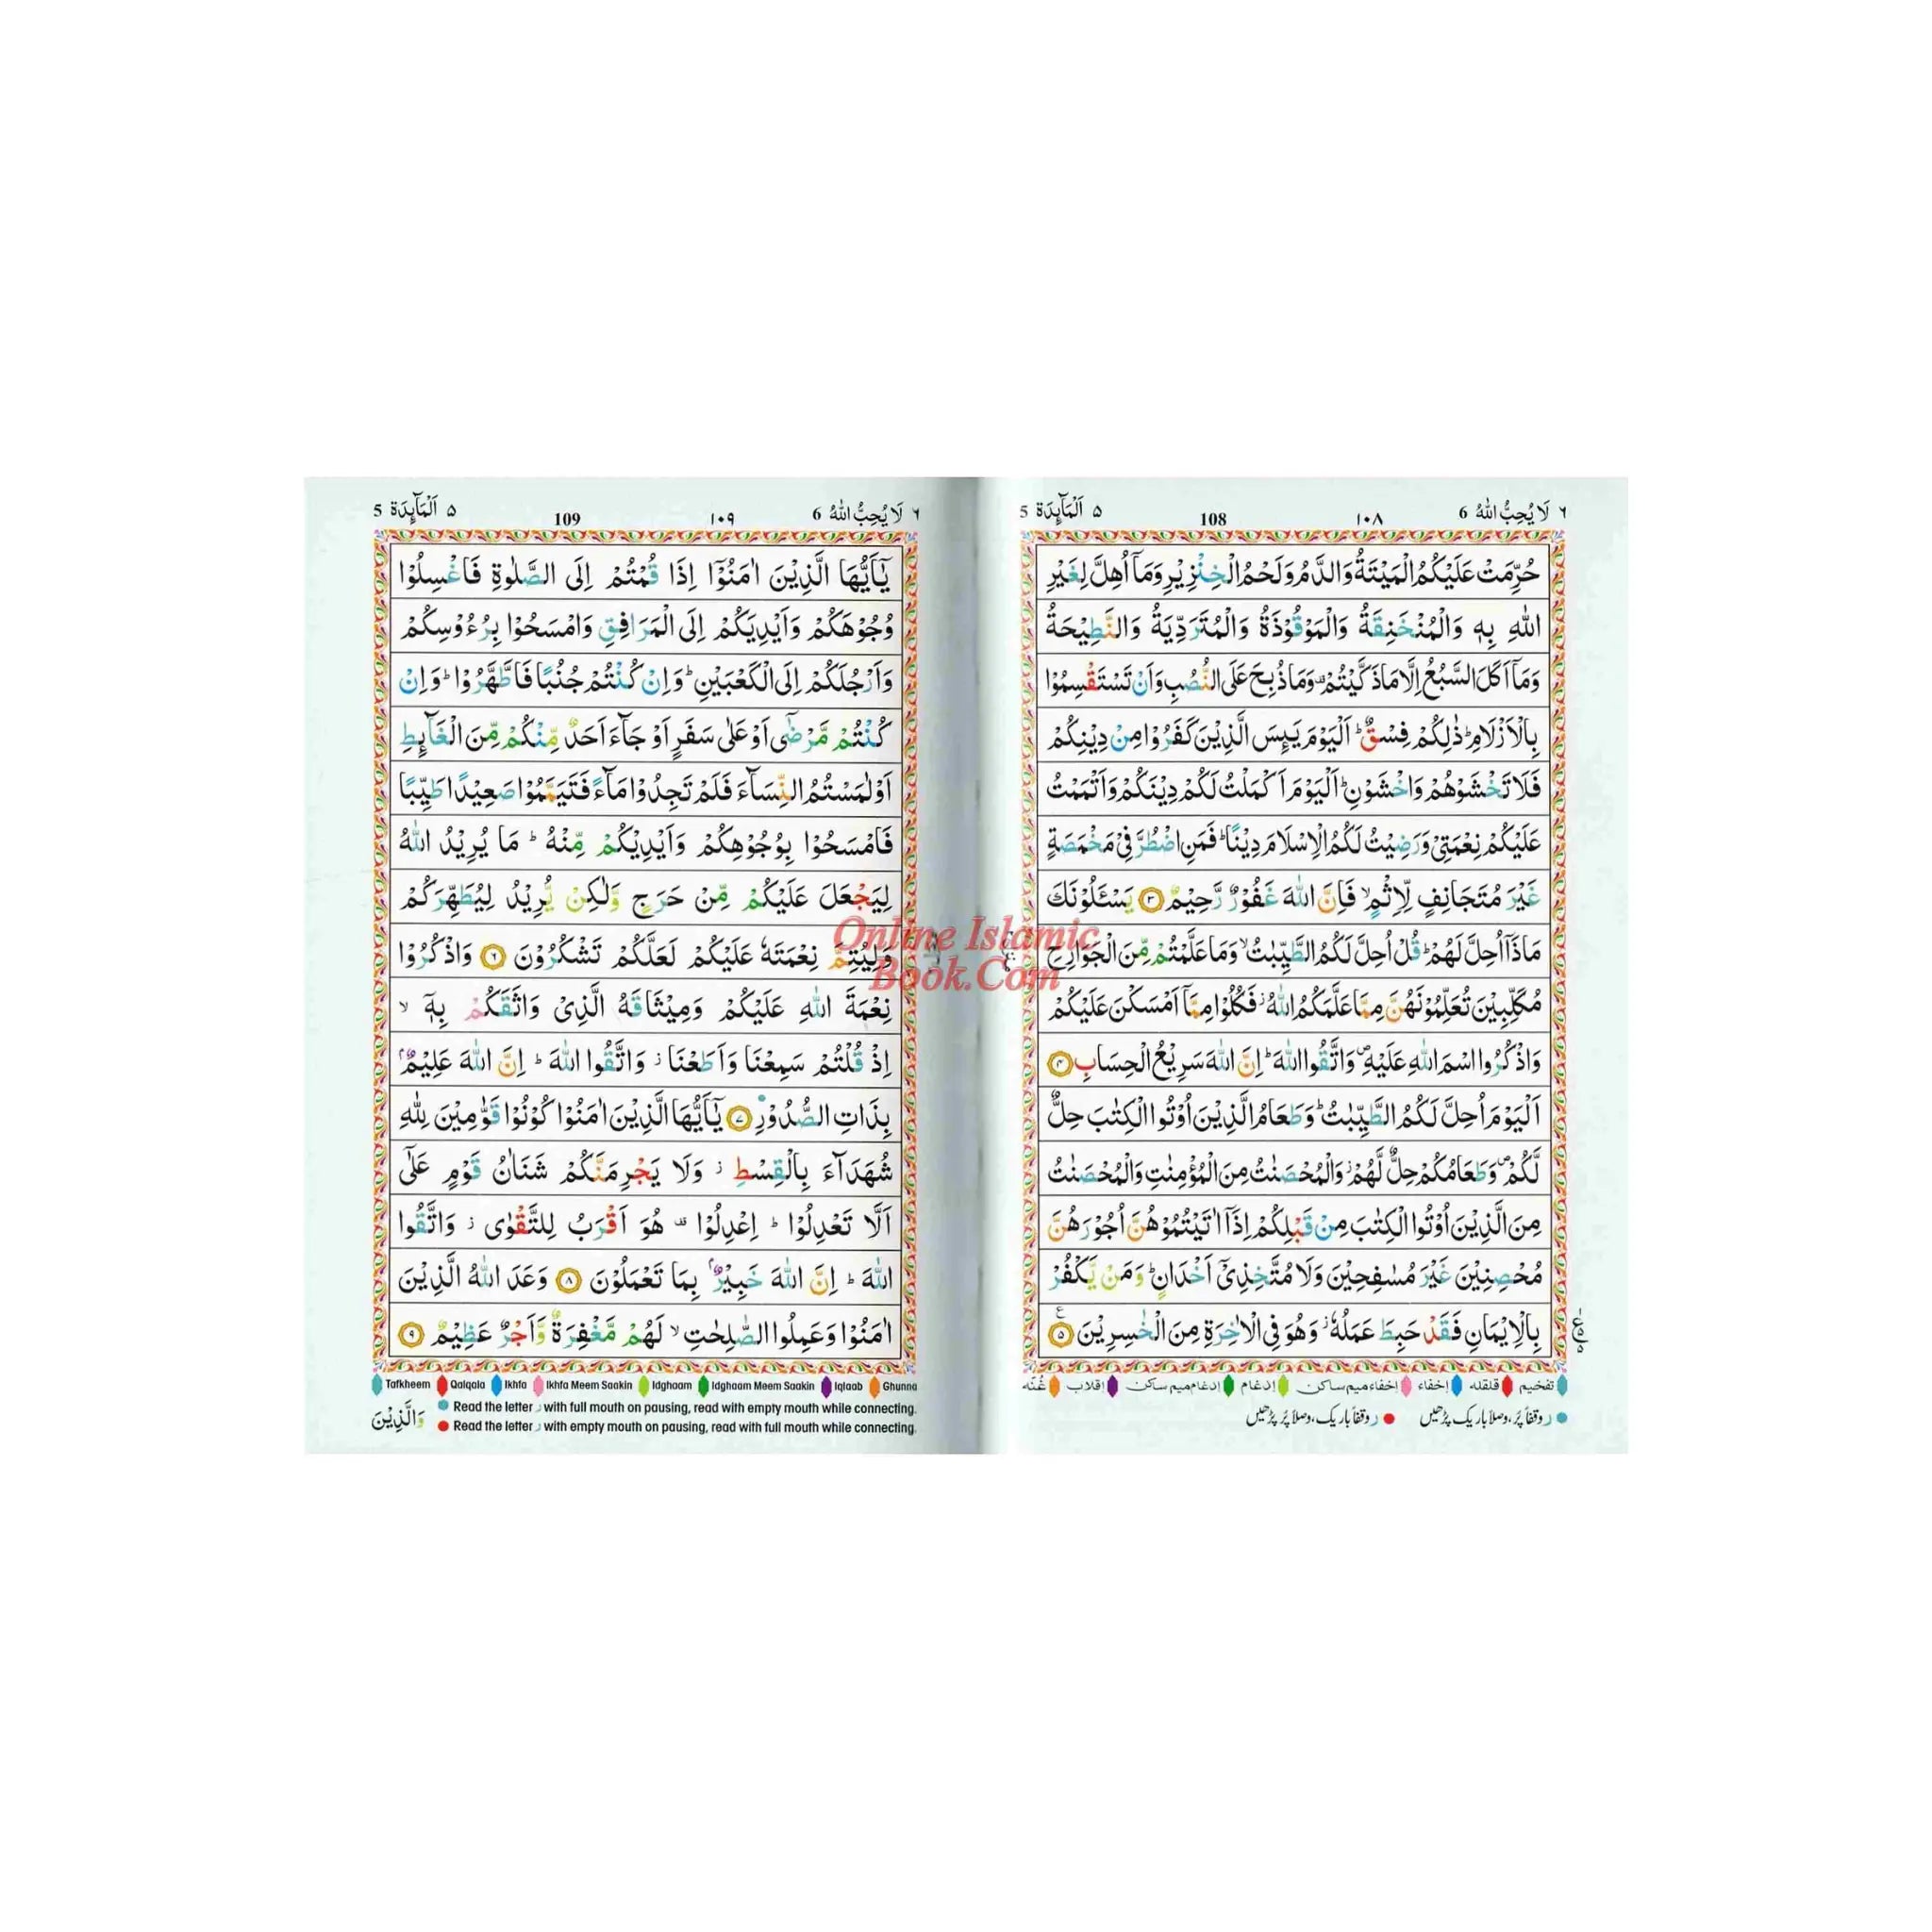 ٦ لَا يُحِبُّ اللّٰهُ 6
١٠٨
108
٥ اَلْمَآئِدَة 5
حُرِّمَتْ عَلَيْكُمُ الْمَيْتَةُ وَالدَّمُ وَلَحْمُ الْخِنْزِيْرِ وَمَآ اُهِلَّ لِغَيْرِ
اللّٰهِ بِهٖ وَالْمُنْخَنِقَةُ وَالْمَوْقُوْذَةُ وَالْمُتَرَدِّيَةُ وَالنَّطِيْحَةُ
وَمَآ اَكَلَ السَّبُعُ اِلَّا مَا ذَكَّيْتُمْ ۫ وَمَا ذُبِحَ عَلَى النُّصُبِ وَاَنْ تَسْتَقْسِمُوْا
بِالْاَزْلَامِ ؕ ذٰلِكُمْ فِسْقٌ ؕ اَلْيَوْمَ يَئِسَ الَّذِيْنَ كَفَرُوْا مِنْ دِيْنِكُمْ
فَلَا تَخْشَوْهُمْ وَاخْشَوْنِ ؕ اَلْيَوْمَ اَكْمَلْتُ لَكُمْ دِيْنَكُمْ وَاَتْمَمْتُ
عَلَيْكُمْ نِعْمَتِيْ وَرَضِيْتُ لَكُمُ الْاِسْلَامَ دِيْنًا ؕ فَمَنِ اضْطُرَّ فِيْ مَخْمَصَةٍ
غَيْرَ مُتَجَانِفٍ لِّاِثْمٍ ۙ فَاِنَّ اللّٰهَ غَفُوْرٌ رَّحِيْمٌ ﴿٣﴾ يَسْـَٔلُوْنَكَ
مَاذَآ اُحِلَّ لَهُمْ ؕ قُلْ اُحِلَّ لَكُمُ الطَّيِّبٰتُ ۙ وَمَا عَلَّمْتُمْ مِّنَ الْجَوَارِحِ
مُكَلِّبِيْنَ تُعَلِّمُوْنَهُنَّ مِمَّا عَلَّمَكُمُ اللّٰهُ ؗ فَكُلُوْا مِمَّآ اَمْسَكْنَ عَلَيْكُمْ
وَاذْكُرُوا اسْمَ اللّٰهِ عَلَيْهِ ۪ وَاتَّقُوا اللّٰهَ ؕ اِنَّ اللّٰهَ سَرِيْعُ الْحِسَابِ ﴿٤﴾
اَلْيَوْمَ اُحِلَّ لَكُمُ الطَّيِّبٰتُ ؕ وَطَعَامُ الَّذِيْنَ اُوْتُوا الْكِتٰبَ حِلٌّ
لَّكُمْ ۪ وَطَعَامُكُمْ حِلٌّ لَّهُمْ ؗ وَالْمُحْصَنٰتُ مِنَ الْمُؤْمِنٰتِ وَالْمُحْصَنٰتُ
مِنَ الَّذِيْنَ اُوْتُوا الْكِتٰبَ مِنْ قَبْلِكُمْ اِذَآ اٰتَيْتُمُوْهُنَّ اُجُوْرَهُنَّ
مُحْصِنِيْنَ غَيْرَ مُسٰفِحِيْنَ وَلَا مُتَّخِذِيْٓ اَخْدَانٍ ؕ وَمَنْ يَّكْفُرْ
بِالْاِيْمَانِ فَقَدْ حَبِطَ عَمَلُهٗ ؗ وَهُوَ فِي الْاٰخِرَةِ مِنَ الْخٰسِرِيْنَ ﴿٥﴾
تفخیم قلقله إخفاء إخفاء میم ساکن إدغام إدغام میم ساکن إقلاب غُنّه
ر وقفاً پُر، وصلاً باریک پڑھیں ر وقفاً باریک، وصلاً پُر پڑھیں
٦ لَا يُحِبُّ اللّٰهُ 6
١٠٩
109
٥ اَلْمَآئِدَة 5
يٰٓاَيُّهَا الَّذِيْنَ اٰمَنُوْٓا اِذَا قُمْتُمْ اِلَى الصَّلٰوةِ فَاغْسِلُوْا
وُجُوْهَكُمْ وَاَيْدِيَكُمْ اِلَى الْمَرَافِقِ وَامْسَحُوْا بِرُءُوْسِكُمْ
وَاَرْجُلَكُمْ اِلَى الْكَعْبَيْنِ ؕ وَاِنْ كُنْتُمْ جُنُبًا فَاطَّهَّرُوْا ؕ وَاِنْ
كُنْتُمْ مَّرْضٰٓى اَوْ عَلٰى سَفَرٍ اَوْ جَآءَ اَحَدٌ مِّنْكُمْ مِّنَ الْغَآئِطِ
اَوْ لٰمَسْتُمُ النِّسَآءَ فَلَمْ تَجِدُوْا مَآءً فَتَيَمَّمُوْا صَعِيْدًا طَيِّبًا
فَامْسَحُوْا بِوُجُوْهِكُمْ وَاَيْدِيْكُمْ مِّنْهُ ؕ مَا يُرِيْدُ اللّٰهُ
لِيَجْعَلَ عَلَيْكُمْ مِّنْ حَرَجٍ وَّلٰكِنْ يُّرِيْدُ لِيُطَهِّرَكُمْ
وَلِيُتِمَّ نِعْمَتَهٗ عَلَيْكُمْ لَعَلَّكُمْ تَشْكُرُوْنَ ﴿٦﴾ وَاذْكُرُوْا
نِعْمَةَ اللّٰهِ عَلَيْكُمْ وَمِيْثَاقَهُ الَّذِيْ وَاثَقَكُمْ بِهٖٓ ۙ
اِذْ قُلْتُمْ سَمِعْنَا وَاَطَعْنَا ؗ وَاتَّقُوا اللّٰهَ ؕ اِنَّ اللّٰهَ عَلِيْمٌۢ
بِذَاتِ الصُّدُوْرِ ﴿٧﴾ يٰٓاَيُّهَا الَّذِيْنَ اٰمَنُوْا كُوْنُوْا قَوّٰمِيْنَ لِلّٰهِ
شُهَدَآءَ بِالْقِسْطِ ؗ وَلَا يَجْرِمَنَّكُمْ شَنَاٰنُ قَوْمٍ عَلٰٓى
اَلَّا تَعْدِلُوْا ؕ اِعْدِلُوْا ۫ هُوَ اَقْرَبُ لِلتَّقْوٰى ؗ وَاتَّقُوا
اللّٰهَ ؕ اِنَّ اللّٰهَ خَبِيْرٌۢ بِمَا تَعْمَلُوْنَ ﴿٨﴾ وَعَدَ اللّٰهُ الَّذِيْنَ
اٰمَنُوْا وَعَمِلُوا الصّٰلِحٰتِ ۙ لَهُمْ مَّغْفِرَةٌ وَّاَجْرٌ عَظِيْمٌ ﴿٩﴾
Tafkheem Qalqala Ikhfa Ikhfa Meem Saakin Idghaam Idghaam Meem Saakin Iqlaab Ghunna
Read the letter ر with full mouth on pausing, read with empty mouth while connecting.
Read the letter ر with empty mouth on pausing, read with full mouth while connecting.
وَالَّذِيْنَ
Online Islamic
Book.Com